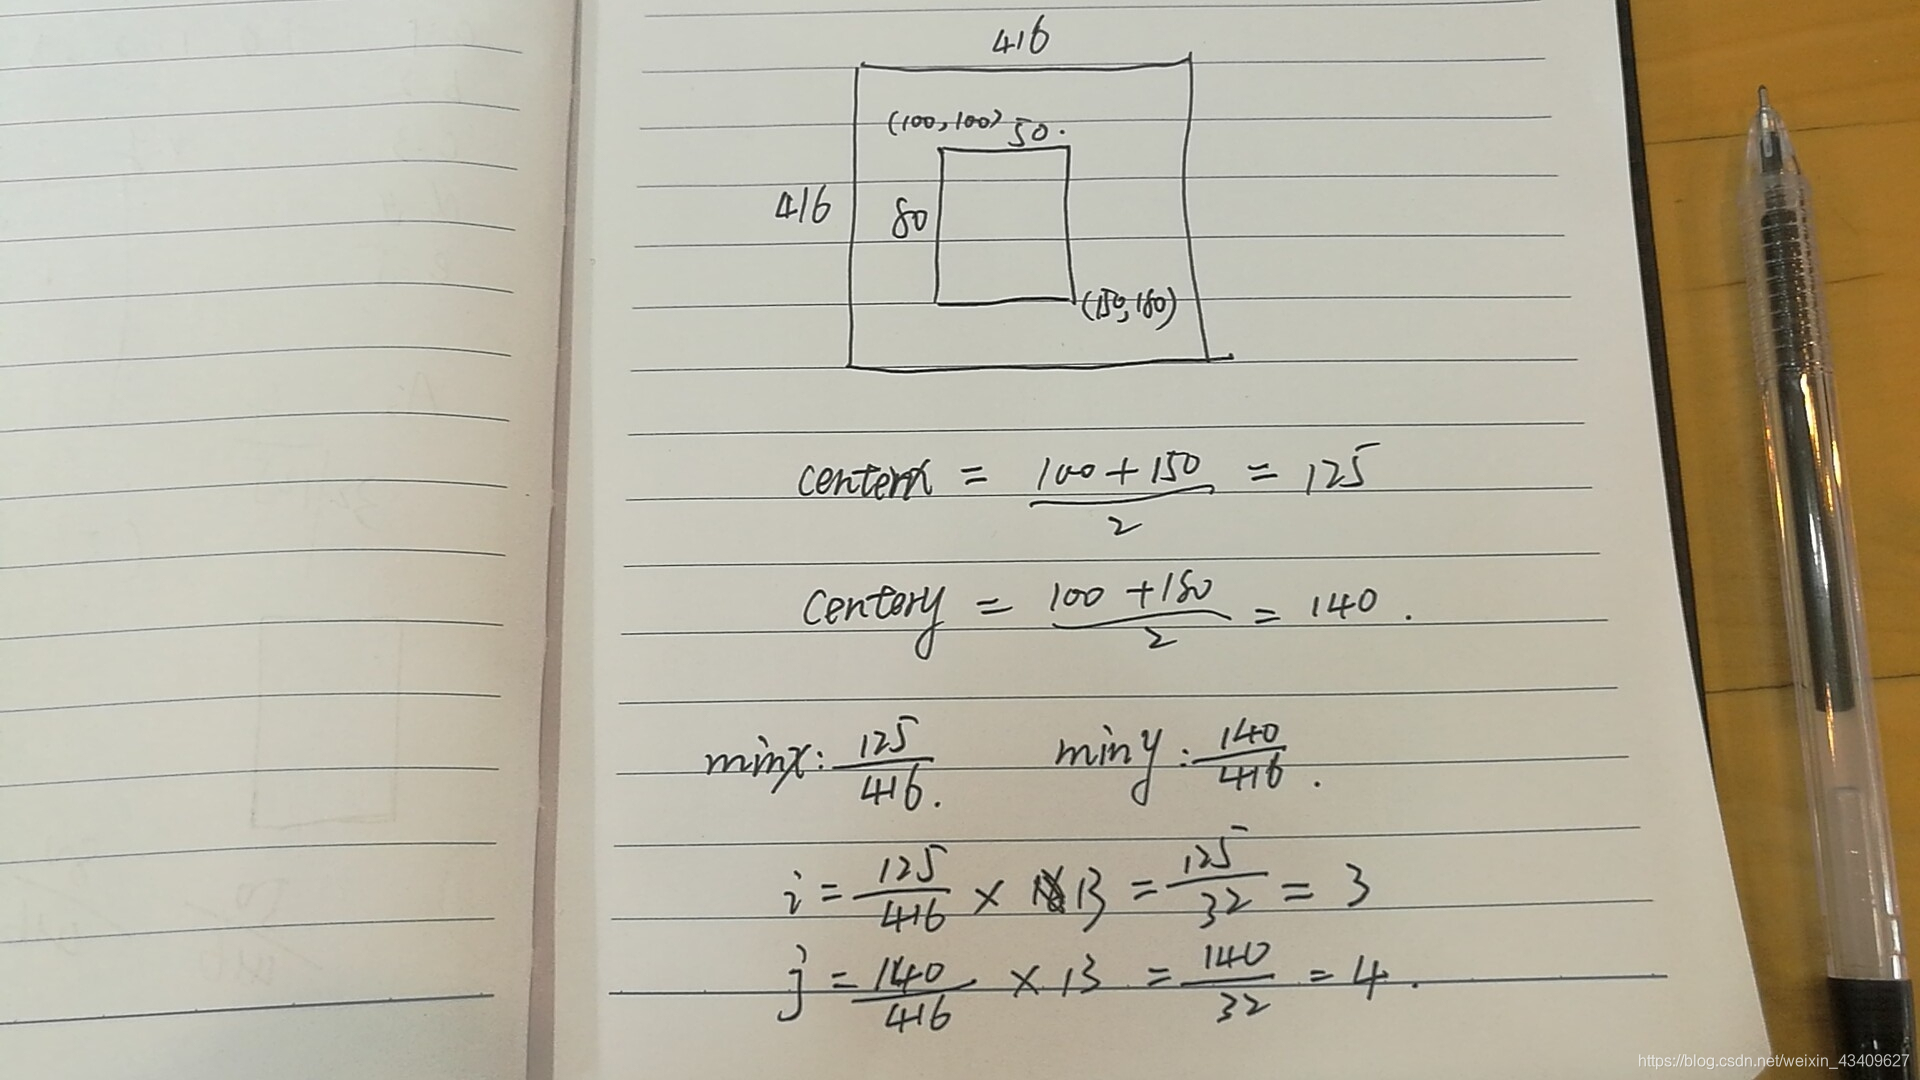 416
(100,100) 50.
416 80
(150,180)
centerx = (100+150)/2 = 125
centery = (100+180)/2 = 140.
minx: 125/416. miny: 140/416.
i = 125/416 × 13 = 125/32 = 3
j = 140/416 × 13 = 140/32 = 4.
https://blog.csdn.net/weixin_43409627